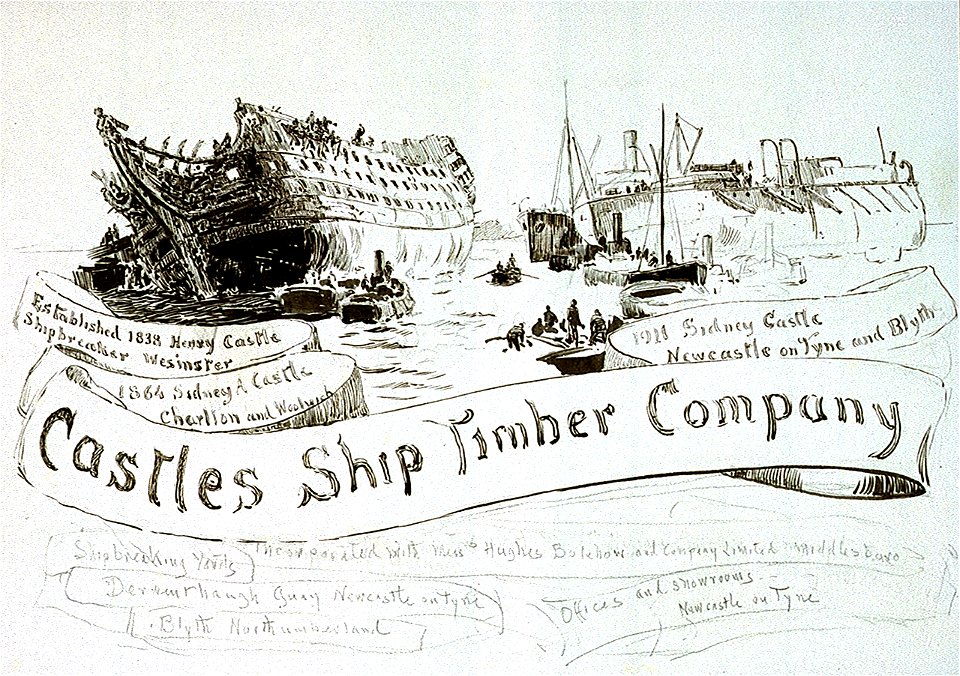 Established 1838 Henry Castle
Shipbreaker Wesinster
1864 Sidney A Castle
Charlton and Woolwich
Sidney Castle
Newcastle on Tyne and Blyth
Castles Ship Timber Company
Shipbreaking Yards
Incorporated with Messrs Hughes Bolckow and Company Limited Middlesboro
Derwenthaugh Quay Newcastle on Tyne
Blyth Northumberland
Offices and showrooms
Newcastle on Tyne